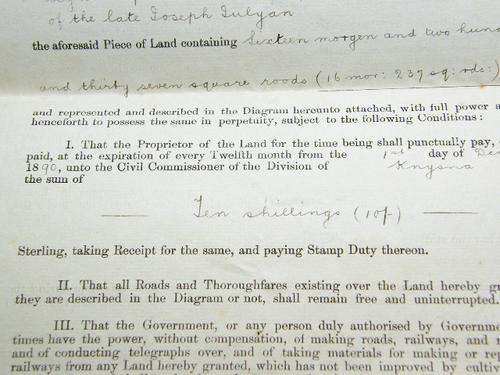 of the late Joseph Gulyan
the aforesaid Piece of Land containing Sixteen morgen and two hun
and thirty seven square roods (16 mor: 237 sq: rds:)
and represented and described in the Diagram hereunto attached, with full power a
henceforth to possess the same in perpetuity, subject to the following Conditions:
I. That the Proprietor of the Land for the time being shall punctually pay,
paid, at the expiration of every Twelfth month from the 1st day of Dec
1890, unto the Civil Commissioner of the Division of Knysna
the sum of
Ten shillings (10/-)
Sterling, taking Receipt for the same, and paying Stamp Duty thereon.
II. That all Roads and Thoroughfares existing over the Land hereby gr
they are described in the Diagram or not, shall remain free and uninterrupted.
III. That the Government, or any person duly authorised by Governme
times have the power, without compensation, of making roads, railways, and
and of conducting telegraphs over, and of taking materials for making or re
railways from any Land hereby granted, which has not been improved by culti